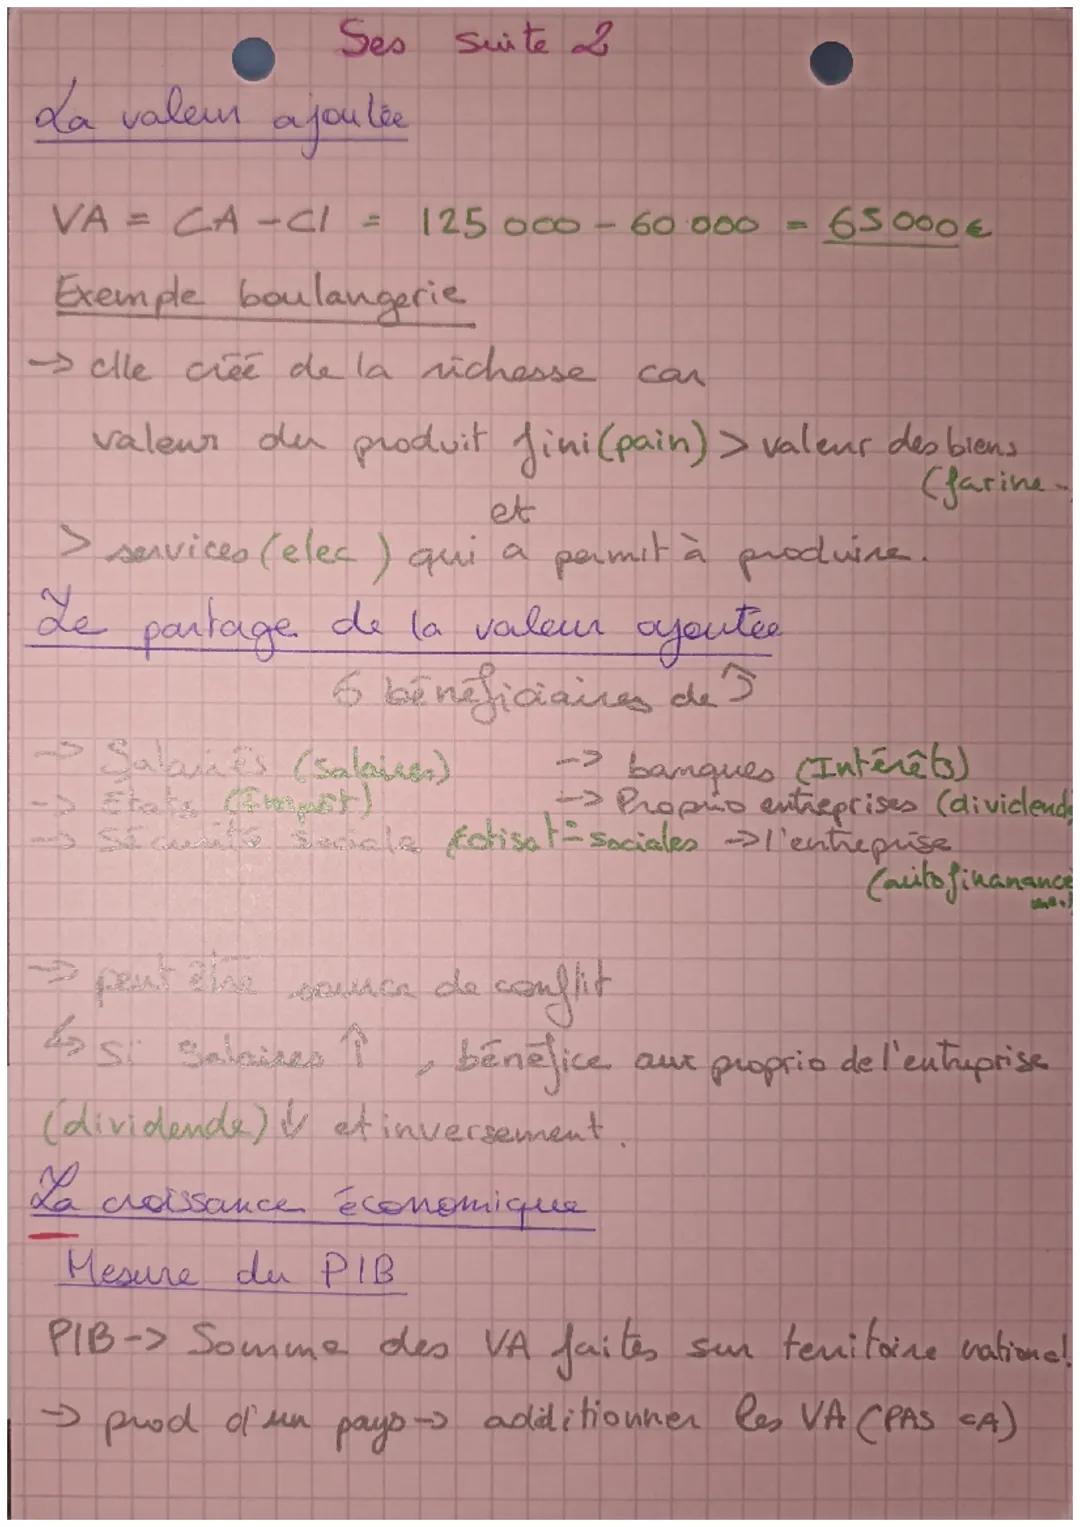 Ses suite 2
La valeur ajoutée
VA = CA - CI = 125 000 - 60 000 = 65 000€
Exemple boulangerie
-> elle créé de la richesse car
valeur du produit fini (pain) > valeur des biens
(farine -
et
> services (elec) qui a permit à produire.
Le partage de la valeur ajoutée
6 bénéficiaires de
-> Salariés (salaires) -> banques (Intérêts)
-> Etats (Impôt) -> Proprio entreprises (dividende
-> Sécurité sociale (cotisat° sociales -> l'entreprise
(autofinanance
-> peut être source de conflit
↳ Si Salaires ↑, bénéfice aux proprio de l'entreprise
(dividende) ↓ et inversement.
La croissance économique
Mesure du PIB
PIB -> Somme des VA faites sur territoire national.
-> prod d'un pays -> additionner les VA (PAS CA)